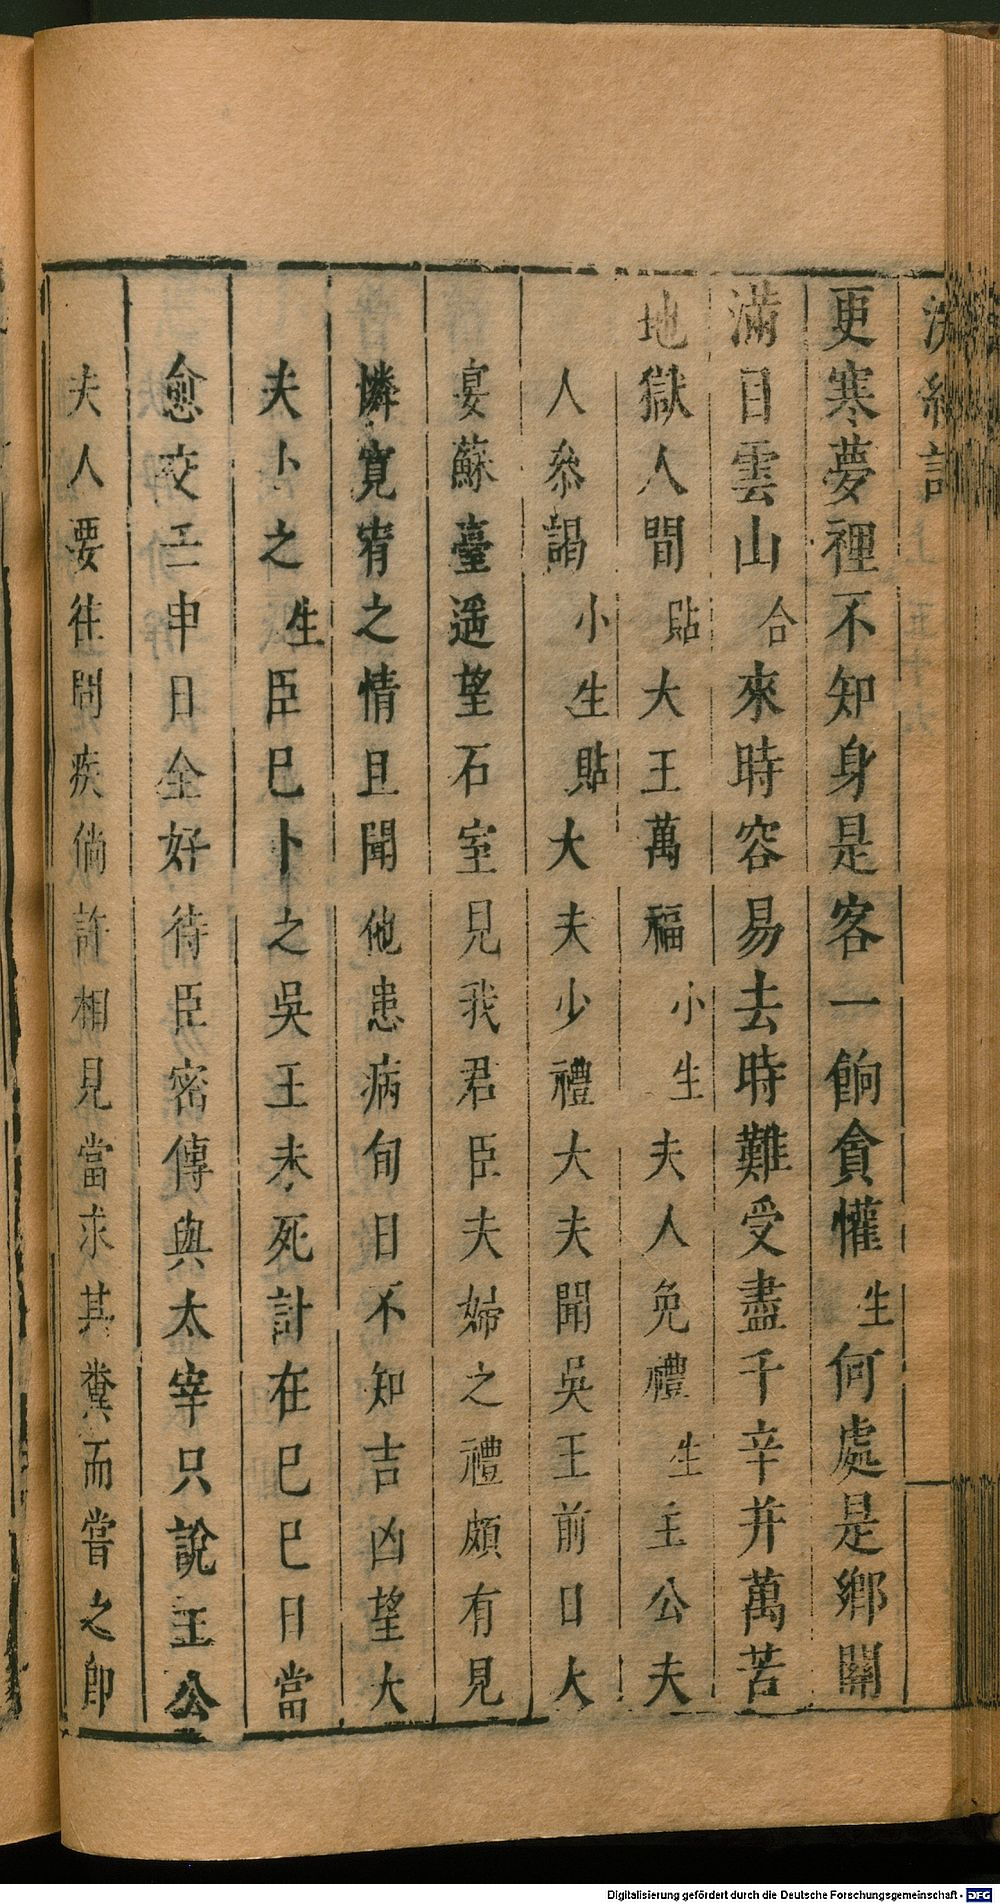 浣紗記
更寒夢裡不知身是客一餉貪懽生何處是鄉關
滿目雲山合來時容易去時難受盡千辛并萬苦
地獄人間貼大王萬福小生夫人免禮生主公夫
人叅謁小生貼大夫少禮大夫聞吳王前日大
宴蘇臺遥望石室見我君臣夫婦之禮頗有見
憐寛宥之情且聞他患病旬日不知吉凶望大
夫卜之生臣已卜之吳王未死計在己巳日當
愈交壬申日全好待臣密傳與太宰只說主公
夫人要往問疾倘許相見當求其糞而嘗之即
Digitalisierung gefördert durch die Deutsche Forschungsgemeinschaft - DFG